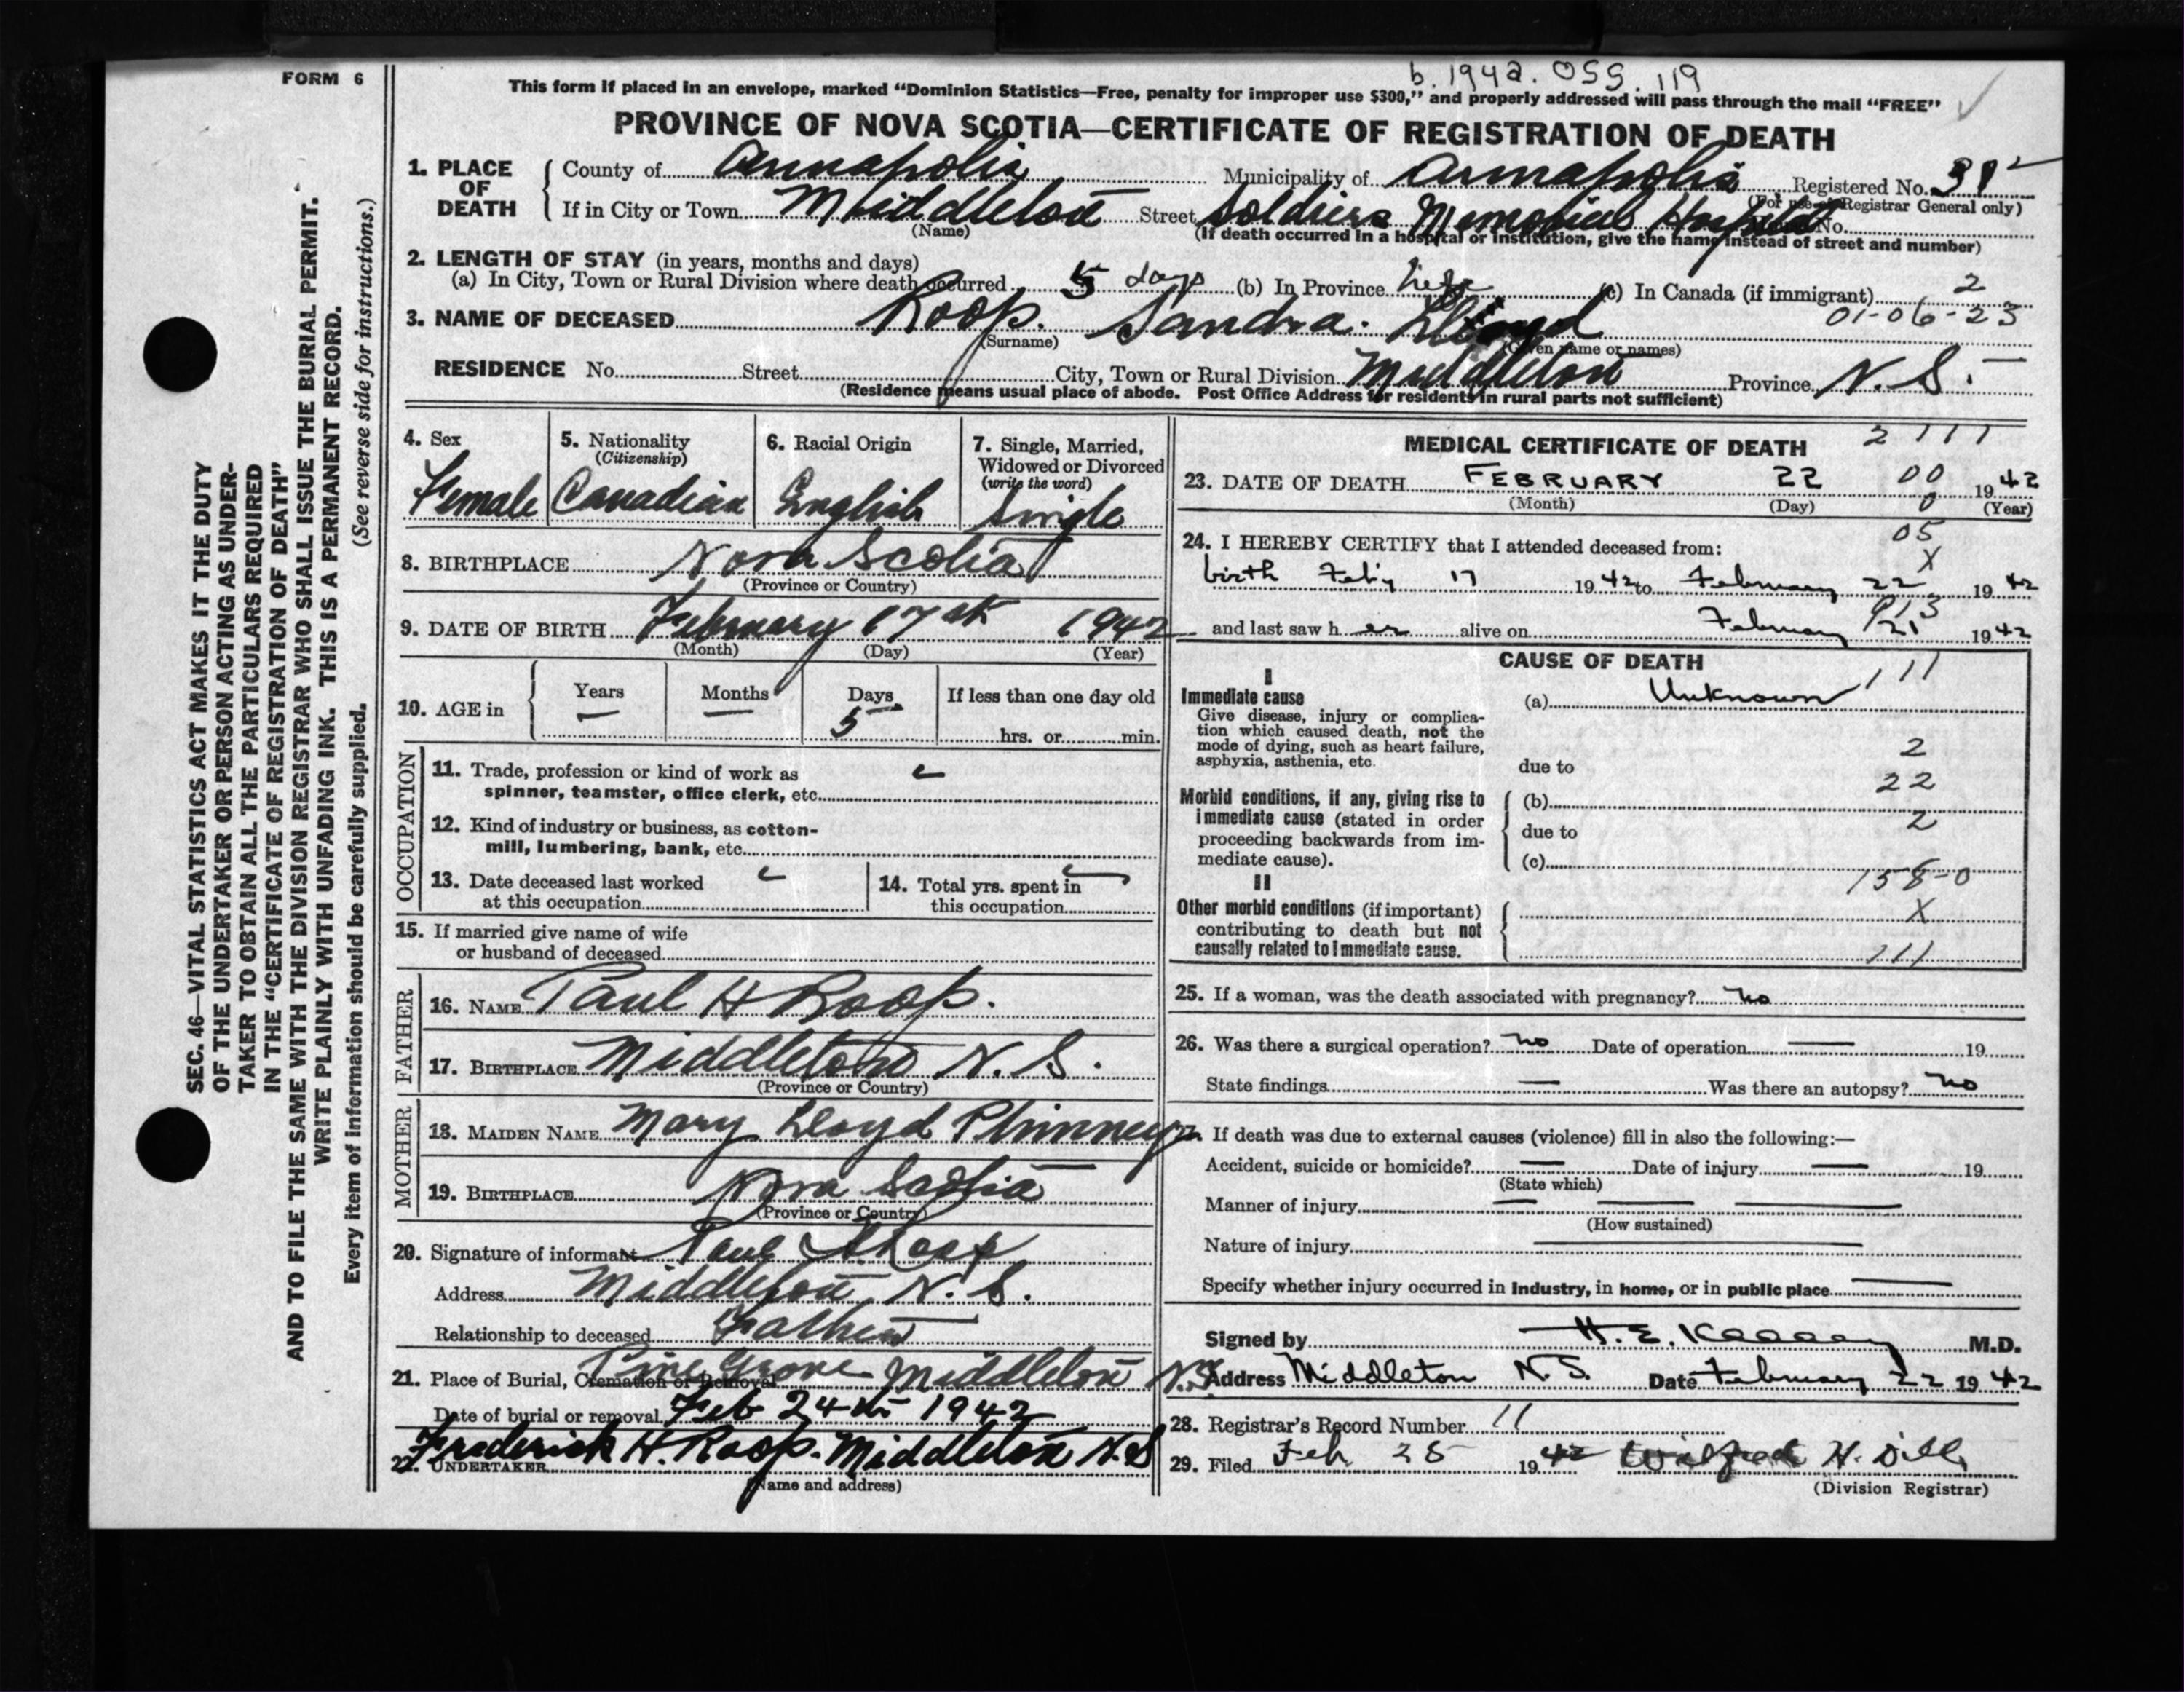 FORM 6
b. 1942. 055. 119
This form if placed in an envelope, marked “Dominion Statistics—Free, penalty for improper use $300,” and properly addressed will pass through the mail “FREE”
PROVINCE OF NOVA SCOTIA—CERTIFICATE OF REGISTRATION OF DEATH
SEC. 46—VITAL STATISTICS ACT MAKES IT THE DUTY
OF THE UNDERTAKER OR PERSON ACTING AS UNDER-
TAKER TO OBTAIN ALL THE PARTICULARS REQUIRED
IN THE “CERTIFICATE OF REGISTRATION OF DEATH”
AND TO FILE THE SAME WITH THE DIVISION REGISTRAR WHO SHALL ISSUE THE BURIAL PERMIT.
WRITE PLAINLY WITH UNFADING INK. THIS IS A PERMANENT RECORD.
Every item of information should be carefully supplied. (See reverse side for instructions.)
1. PLACE OF DEATH County of Annapolis Municipality of Annapolis Registered No.
(For use of Registrar General only)
If in City or Town Middleton Street Soldiers Memorial Hospital No.
(Name) (If death occurred in a hospital or institution, give the name instead of street and number)
2. LENGTH OF STAY (in years, months and days)
(a) In City, Town or Rural Division where death occurred 5 days (b) In Province life (c) In Canada (if immigrant) 2
01-06-23
3. NAME OF DECEASED Roop. Sandra. Lloyd
(Surname) (Given name or names)
RESIDENCE No. Street City, Town or Rural Division Middleton Province N. S.
(Residence means usual place of abode. Post Office Address for residents in rural parts not sufficient)
4. Sex 5. Nationality 6. Racial Origin 7. Single, Married,
(Citizenship) Widowed or Divorced
(write the word)
Female Canadian English Single
8. BIRTHPLACE Nova Scotia
(Province or Country)
9. DATE OF BIRTH February 17th 1942
(Month) (Day) (Year)
10. AGE in Years Months Days If less than one day old
— — 5 hrs. or min.
OCCUPATION
11. Trade, profession or kind of work as
spinner, teamster, office clerk, etc.
12. Kind of industry or business, as cotton-
mill, lumbering, bank, etc.
13. Date deceased last worked 14. Total yrs. spent in
at this occupation this occupation
15. If married give name of wife
or husband of deceased
FATHER
16. NAME Paul H Roop.
17. BIRTHPLACE Middleton N. S.
(Province or Country)
MOTHER
18. MAIDEN NAME Mary Lloyd Phinney
19. BIRTHPLACE Nova Scotia
(Province or Country)
20. Signature of informant Paul H Roop
Address Middleton N. S.
Relationship to deceased Father
21. Place of Burial, Cremation or Removal Pine Grove Middleton N.S.
Date of burial or removal Feb 24th 1942
22. UNDERTAKER Frederick H. Roop. Middleton N. S
(Name and address)
MEDICAL CERTIFICATE OF DEATH 2 111
23. DATE OF DEATH FEBRUARY 22 00 1942
(Month) (Day) 0 (Year)
05
24. I HEREBY CERTIFY that I attended deceased from: X
birth Feb'y 17 1942 to February 22 1942
913
and last saw her alive on February 21 1942
CAUSE OF DEATH
I
Immediate cause (a) Unknown 111
Give disease, injury or complica-
tion which caused death, not the
mode of dying, such as heart failure,
asphyxia, asthenia, etc.
due to 2
22
Morbid conditions, if any, giving rise to (b)
immediate cause (stated in order 2
proceeding backwards from im- due to
mediate cause). (c)
158-0
II
Other morbid conditions (if important) X
contributing to death but not
causally related to immediate cause. 111
25. If a woman, was the death associated with pregnancy? no
26. Was there a surgical operation? no Date of operation — 19
State findings — Was there an autopsy? no
27. If death was due to external causes (violence) fill in also the following:—
Accident, suicide or homicide? — Date of injury — 19
(State which)
Manner of injury —
(How sustained)
Nature of injury —
Specify whether injury occurred in industry, in home, or in public place —
Signed by H. E. M.D.
Address Middleton N. S. Date February 22 1942
28. Registrar's Record Number 11
29. Filed Feb 25 1942 Wilfred H.
(Division Registrar)